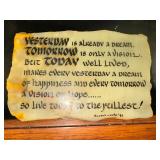 YESTERDAY is already a dream.
TOMORROW is only a vision...
But TODAY well lived,
makes every yesterday a dream
of happiness and every tomorrow
a vision of hope......
so live today to the fullest!